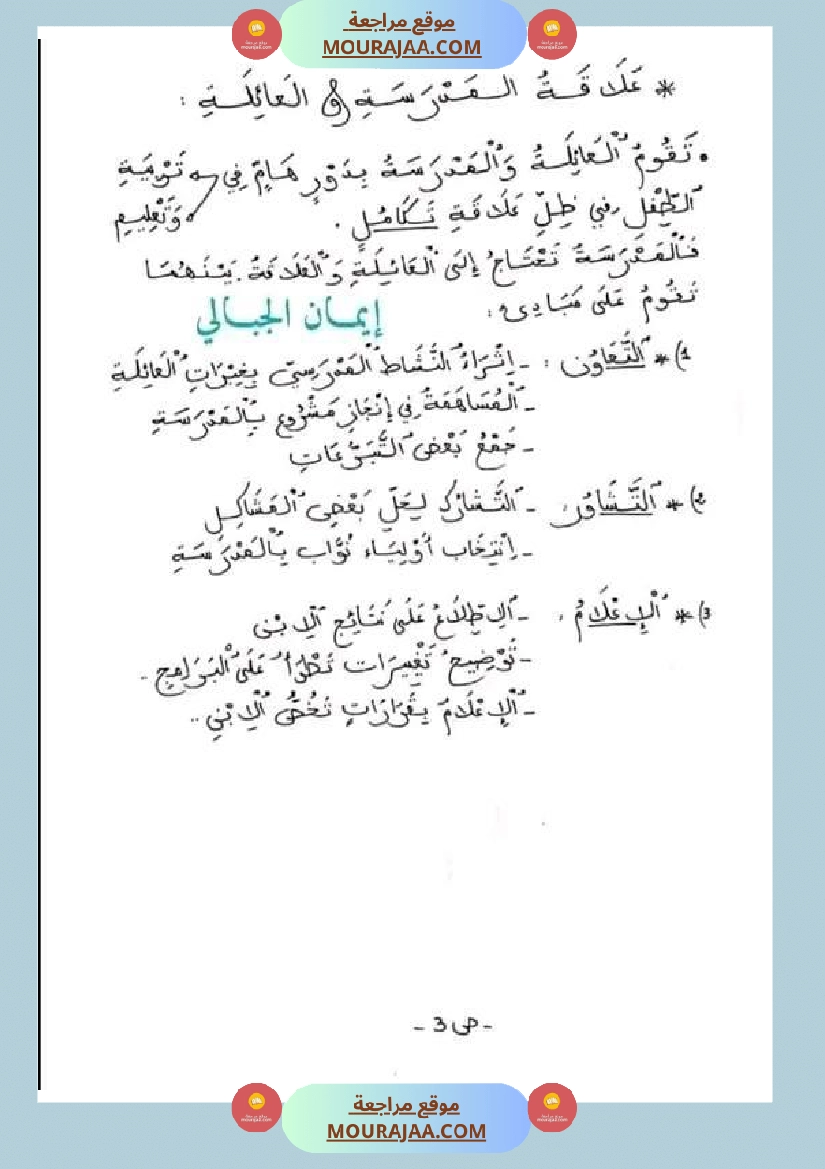 موقع مراجعة
MOURAJAA.COM
* عَلَاقَةُ المَدْرَسَةِ وَ العَائِلَةِ :
• تَقُومُ ٱلْعَائِلَةُ وَٱلْمَدْرَسَةُ بِدَوْرٍ هَامٍّ فِي تَرْبِيَةِ
وَتَعْلِيمِ
ٱلطِّفْلِ فِي ظِلِّ عَلَاقَةِ تَكَامُلٍ .
فَٱلْمَدْرَسَةُ تَحْتَاجُ إِلَى ٱلْعَائِلَةِ وَٱلْعَلَاقَةُ بَيْنَهُمَا
تَقُومُ عَلَى مَبَادِئ :
إيمان الجبالي
1) * ٱلتَّعَاوُن : - إِثْرَاءُ ٱلنَّشَاط ٱلْمَدْرَسِيّ بِخِبْرَاتِ ٱلْعَائِلَةِ
- ٱلْمُسَاهَمَةُ فِي إِنْجَازِ مَشْرُوع بِٱلْمَدْرَسَةِ
- جَمْعُ بَعْضِ ٱلتَّبَرُّعَاتِ
2) * ٱلتَّشَاوُر : - ٱلتَّشَارُك لِحَلِّ بَعْضِ ٱلْمَشَاكِلِ
- اِنْتِخَاب أَوْلِيَاء نُوَّاب بِٱلْمَدْرَسَةِ
3) * ٱلْإِعْلَامُ : - ٱلِاطِّلَاعُ عَلَى نَتَائِجِ ٱلِابْنِ
- تَوْضِيحُ تَغْيِيرَات تَطْرَأُ عَلَى ٱلْبَرَامِجِ .
- ٱلْإِعْلَامُ بِقَرَارَاتٍ تَخُصُّ ٱلِابْنِ ..
- ص 3 -
موقع مراجعة
MOURAJAA.COM